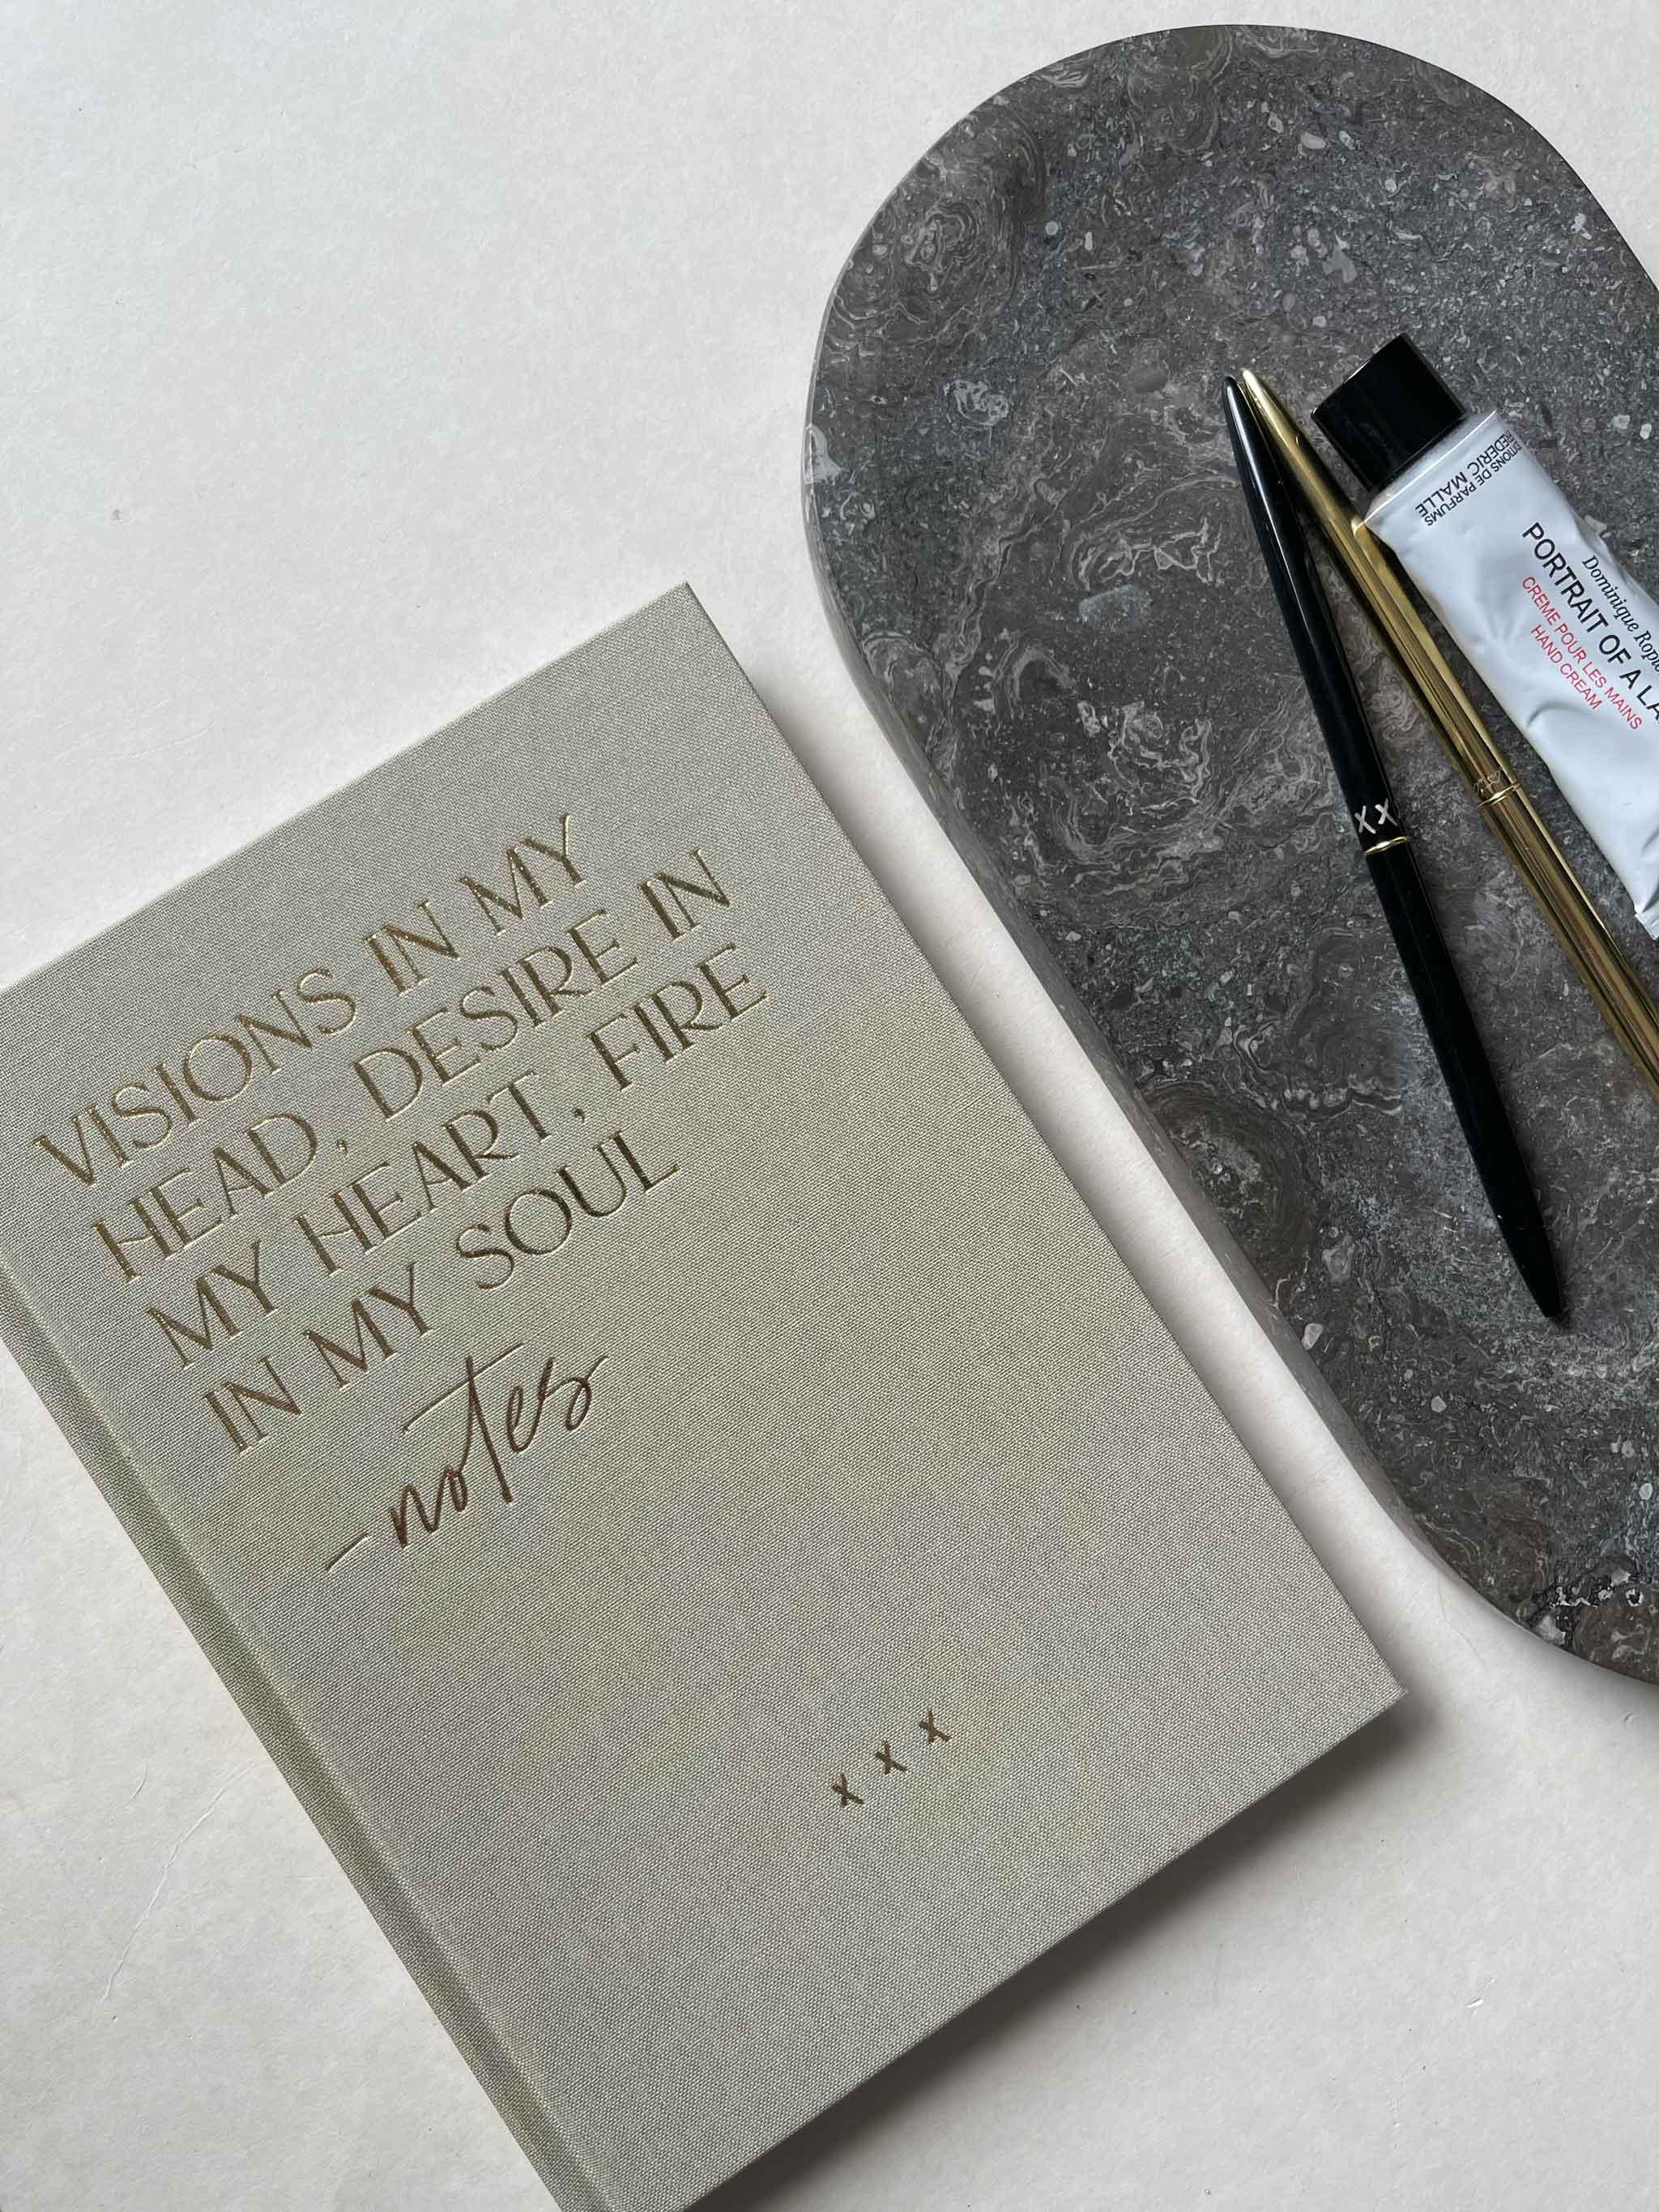 VISIONS IN MY
HEAD, DESIRE IN
MY HEART, FIRE
IN MY SOUL
-notes
x x x
x x
EDITIONS DE PARFUMS
FREDERIC MALLE
Dominique
PORTRAIT OF A
CREME POUR LES MAINS
HAND CREAM